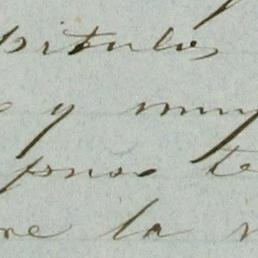 pitulos
y muy
pues te
re la